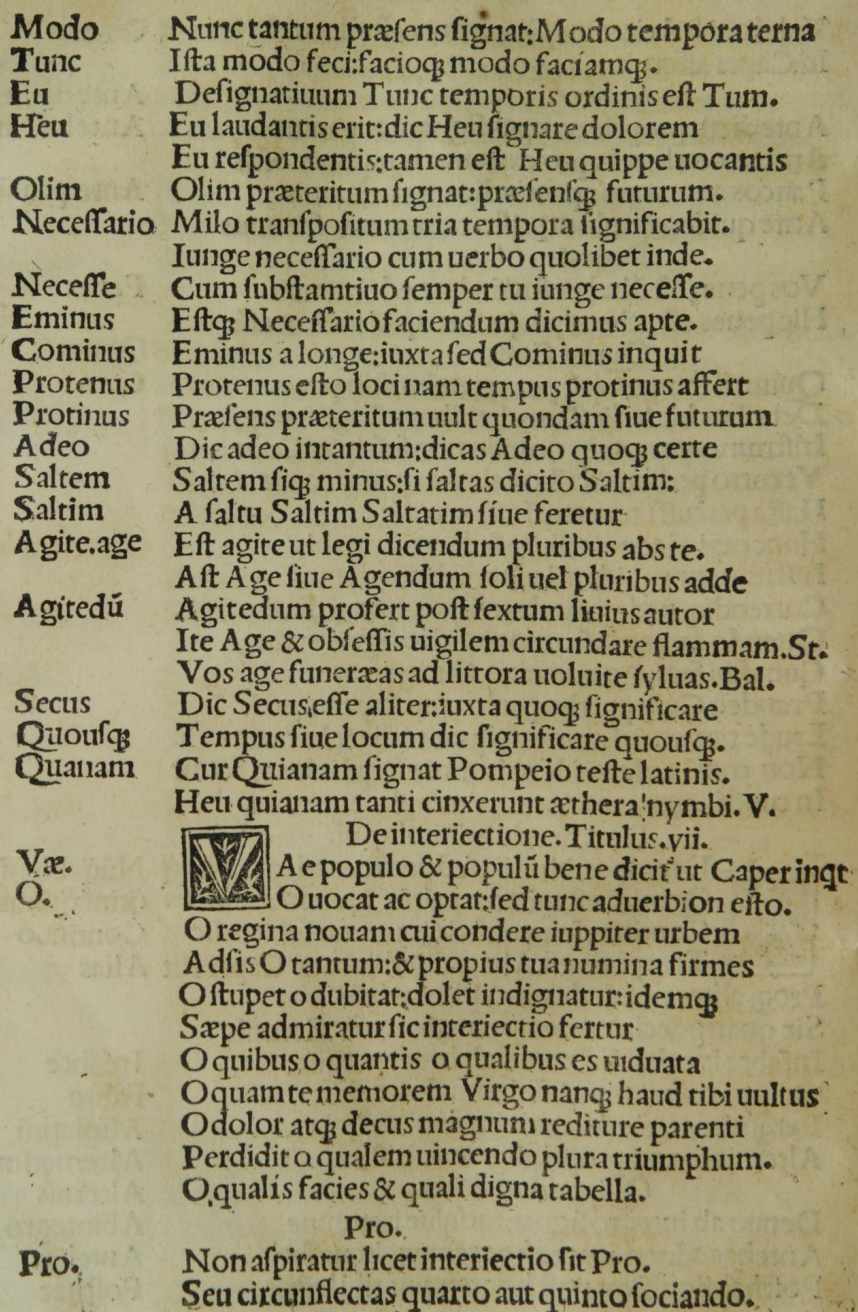 Modo Nunc tantum præſens ſignat:Modo tempora terna
Tunc Iſta modo feci:facioqꝫ modo faciamqꝫ.
Eu Deſignatiuum Tunc temporis ordinis eſt Tum.
Heu Eu laudantis erit:dic Heu ſignare dolorem
Eu reſpondentis:tamen eſt Heu quippe uocantis
Olim Olim præteritum ſignat:præſenſqꝫ futurum.
Neceſſario Milo tranſpoſitum tria tempora ſignificabit.
Iunge neceſſario cum uerbo quolibet inde.
Neceſſe Cum ſubſtamtiuo ſemper tu iunge neceſſe.
Eminus Eſtqꝫ Neceſſario faciendum dicimus apte.
Cominus Eminus a longe:iuxta ſed Cominus inquit
Protenus Protenus eſto loci nam tempus protinus affert
Protinus Præſens præteritum uult quondam ſiue futurum
Adeo Dic adeo intantum:dicas Adeo quoqꝫ certe
Saltem Saltem ſiqꝫ minus:ſi ſaltas dicito Saltim:
Saltim A ſaltu Saltim Saltatim ſiue feretur
Agite.age Eſt agite ut legi dicendum pluribus abs te.
Aſt Age ſiue Agendum ſoli uel pluribus adde
Agitedū Agitedum profert poſt ſextum liuius autor
Ite Age & obſeſſis uigilem circundare flammam.St.
Vos age funeræas ad littora uoluite ſyluas.Bal.
Secus Dic Secus,eſſe aliter:iuxta quoqꝫ ſignificare
Quouſqꝫ Tempus ſiue locum dic ſignificare quouſqꝫ.
Quanam Cur Quianam ſignat Pompeio teſte latinis.
Heu quianam tanti cinxerunt æthera nymbi.V.
De interiectione.Titulus.vii.
Væ. VAe populo & populū bene dicit̉ ut Caper inqt
O. O uocat ac optat:ſed tunc aduerbion eſto.
O regina nouam cui condere iuppiter urbem
Adſis O tantum:& propius tua numina firmes
O ſtupet o dubitat:dolet indignatur:idemqꝫ
Sæpe admiratur ſic interiectio fertur
O quibus o quantis o qualibus es uiduata
O quam te memorem Virgo nanqꝫ haud tibi uultus
O dolor atqꝫ decus magnum rediture parenti
Perdidit o qualem uincendo plura triumphum.
O,qualis facies & quali digna tabella.
Pro.
Pro. Non aſpiratur licet interiectio fit Pro.
Seu circunflectas quarto aut quinto ſociando.